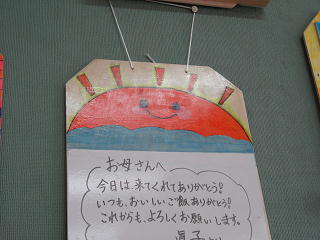 お母さんへ
今日は来てくれてありがとう!
いつも、おいしいご飯ありがとう!
これからも、よろしくお願いします。
眞子より